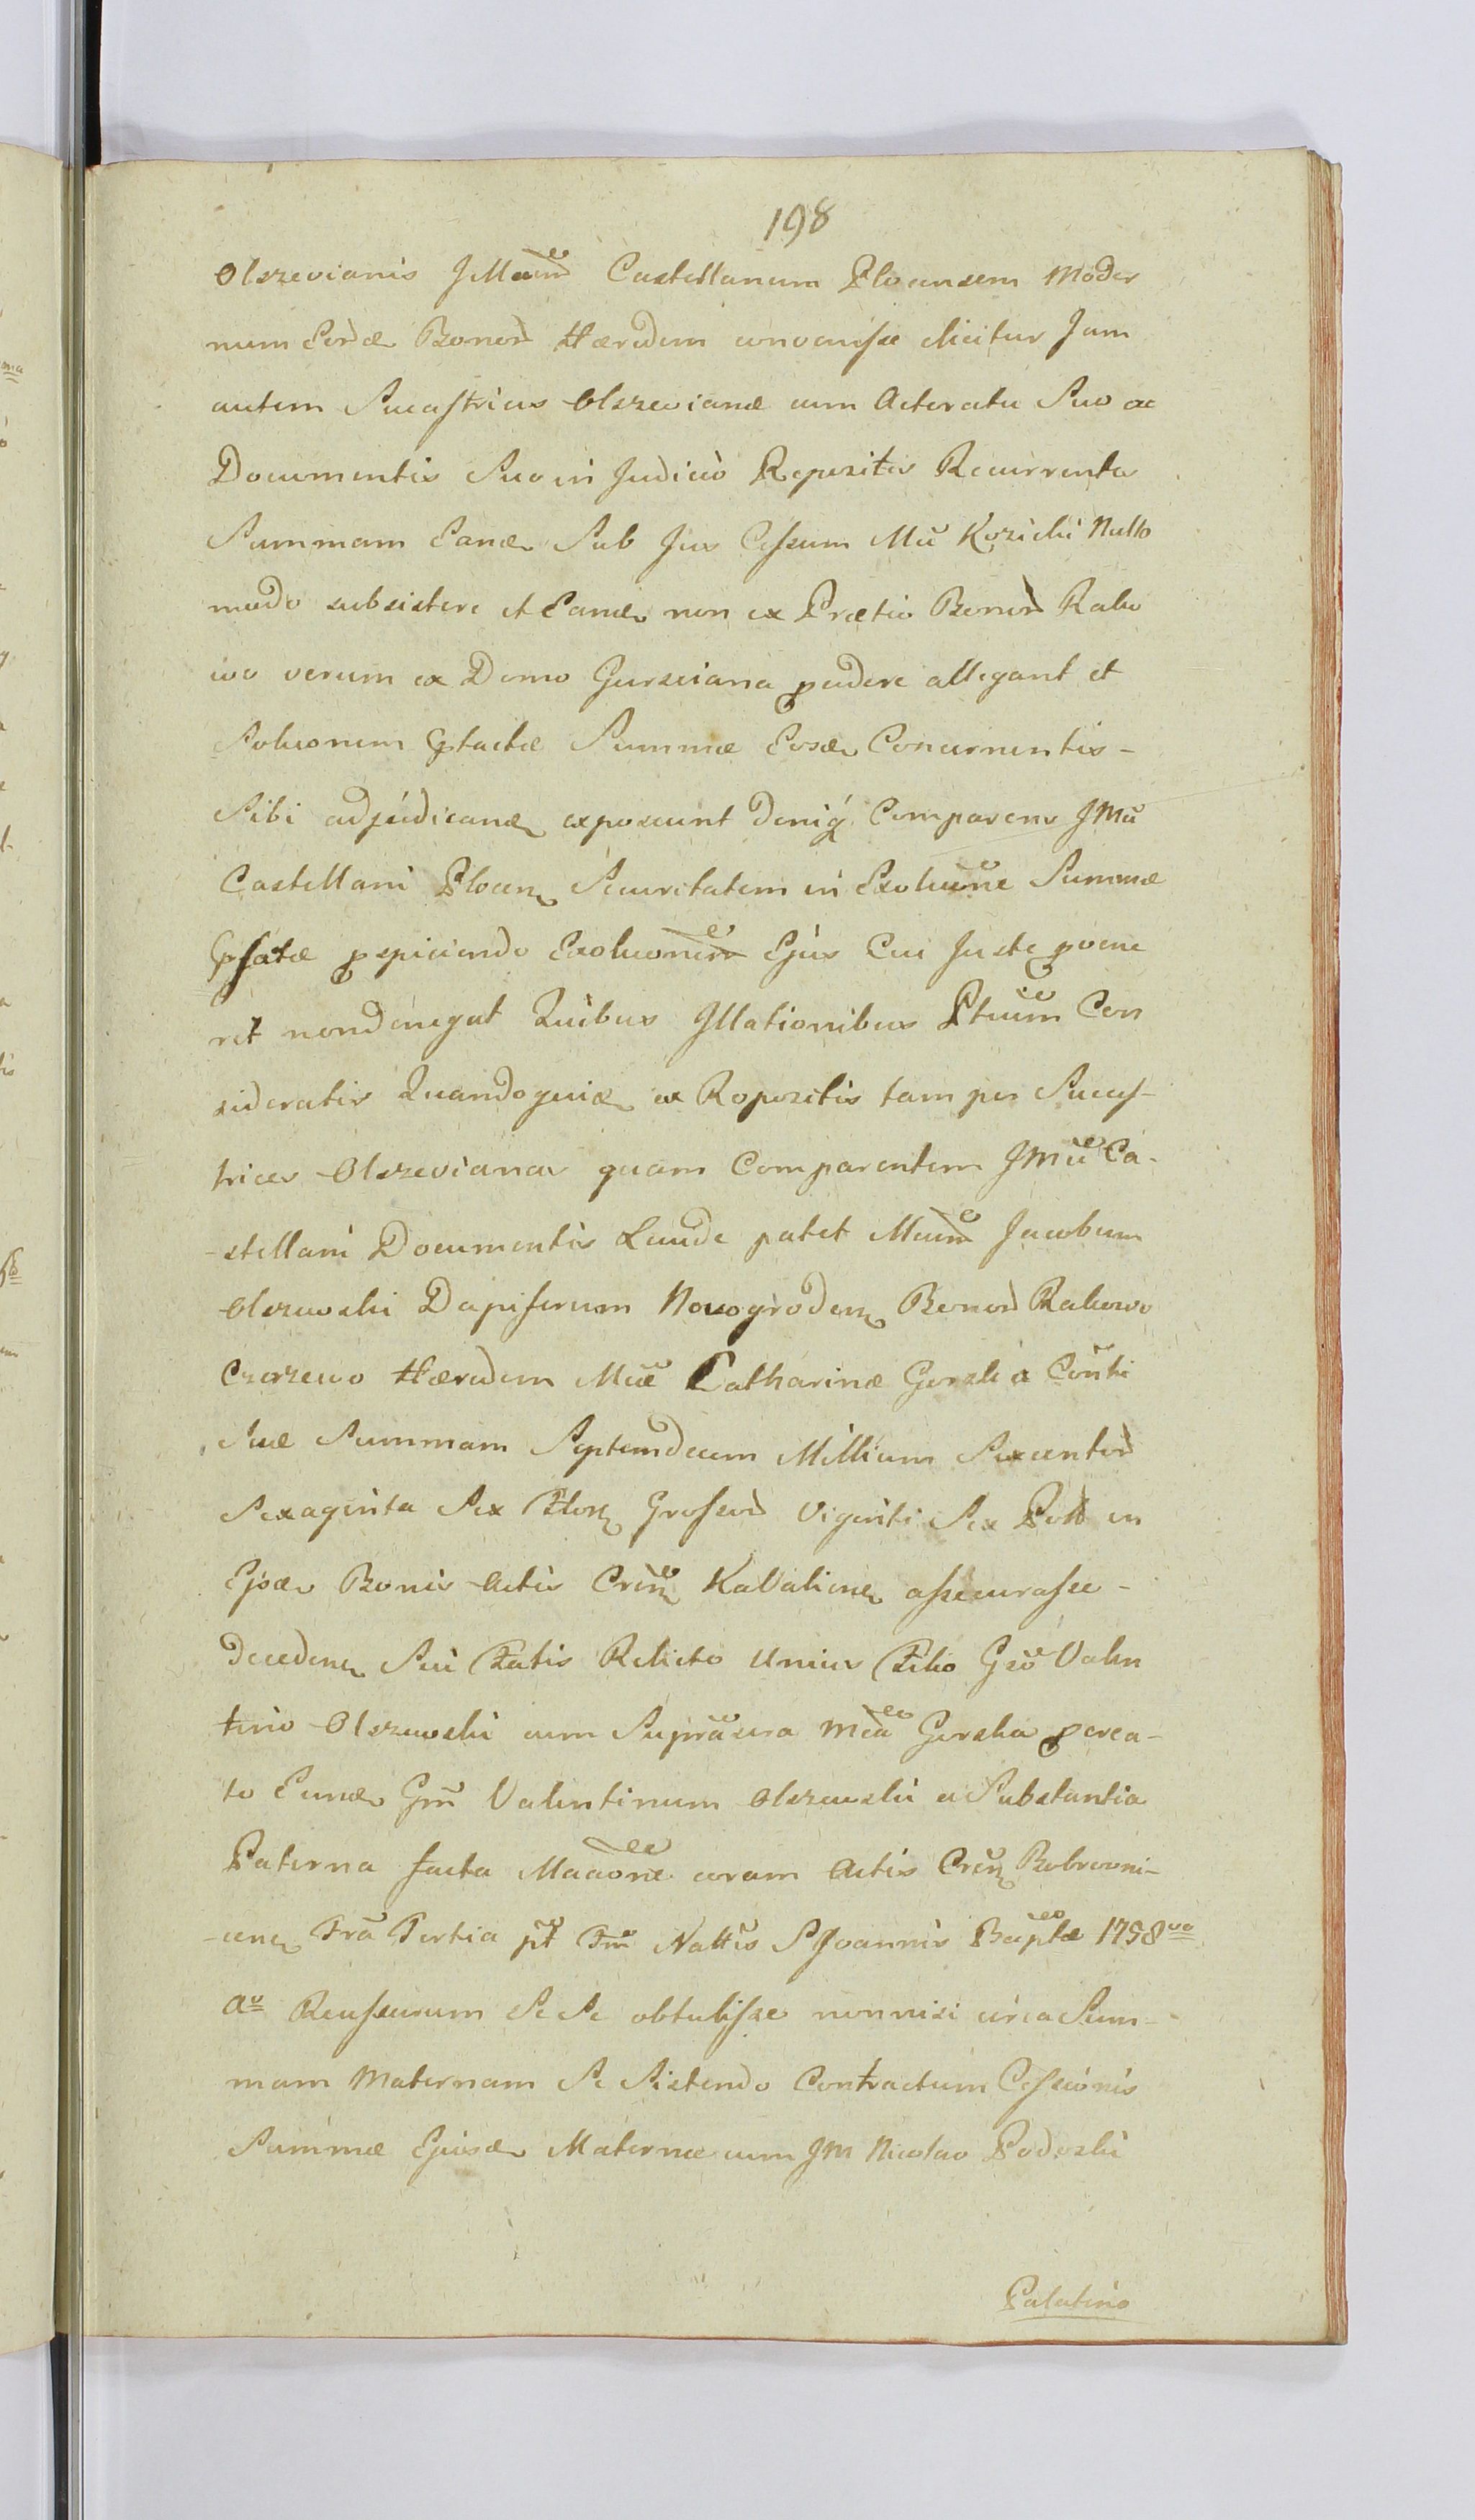 198
Olszevianis JMaum Castellanum Plocensem Moder
num Eordæ Bonor Hæredem convenisse dicitur Jam
autem Sucastrices Olszevianæ cum Actoratu Suo ac
Documentis Suo in Judicio Repositis Recurrentes
Summam Eande Sub Jus Cessum Mci Kozicki Nullo
modo subsistere et Eande non ex Prætio Bonor Rako
wo verum ex Domo Gorsciana pendere allegant et
Solucionem Ptactæ Summæ Eosde Concernentis -
Sibi adjudicand exposcunt Deniq Comparens JMci
Castellani Plocen Securitatem in Exolucne Summæ
Pfatæ pspiciendo Exolucionem Ejus Cui Juste pvene
ret non denegat Quibus Illationibus Ptium Con
sideratis Quandoquid ex Repositis tam per Succes-
trices Olszevianas quam Comparentem JMci Ca-
-stellani Documentis Laude patet Mcum Jacobum
Olszewski Dapiferum Novogroden Bonor Rakowo
Czerzewo Hæredem Mcæ Catharinæ Gorska Conthi
Suæ Summam Septemdecem Millium Sexcentor
Sexaginta Sex Flor Grossor Viginti Sex Poll in
Ejsde Bonis Actis Cren Kavaliene assecurasse -
Deceden Sui Fatis Relicto Unius Filio Gso Valen
tino Olszewski cum Suprascra Mca Gorska pcrea-
to Eunde Gm Valentinum Olszewski a Substantia
Paterna facta Macaone coram Actis Cren Bobrowni-
-cen Fra Tertia pt Fm Nattis S Joannis Baptæ 1758vo
Ao Recessurum Se Se obtulisse nonnisi circa Sum-
mam Maternam Se Sistendo Contractum Cessionis
Summæ Ejusde Maternæ cum JM Nicolao Podoski
Palatino